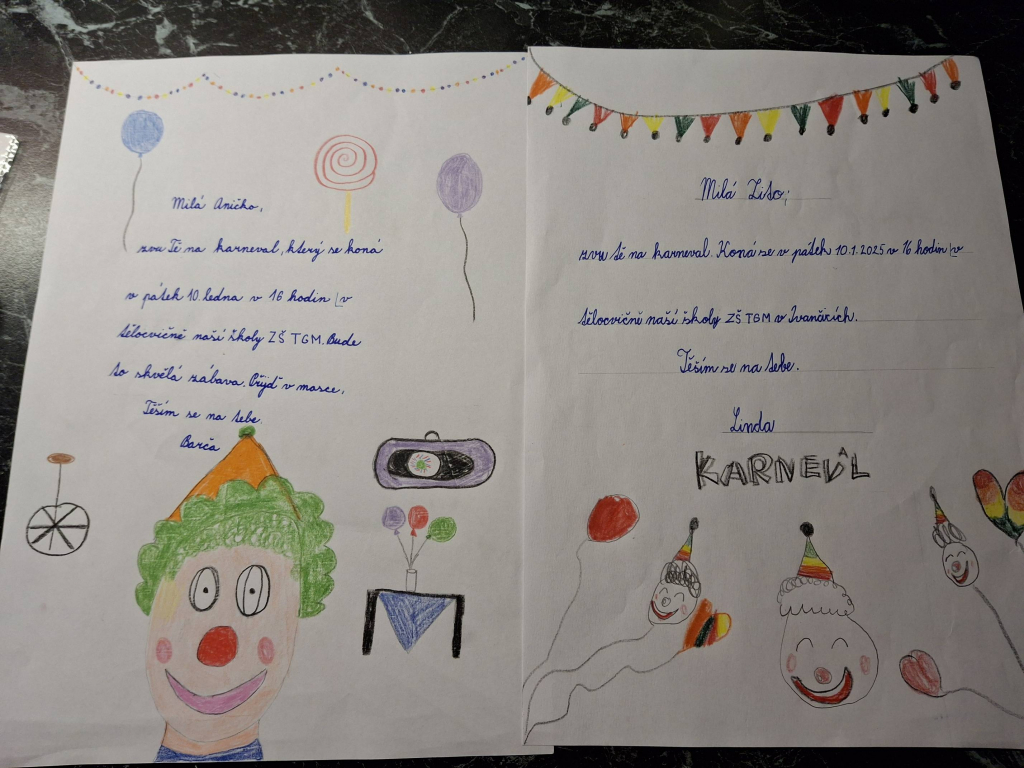 Milá Aničko,
zvu Tě na karneval, který se koná
v pátek 10. ledna v 16 hodin v
tělocvičně naší školy ZŠ TGM. Bude
to skvělá zábava. Přijď v masce.
Těším se na tebe.
Barča
Milá Zito,
zvu tě na karneval. Koná se v pátek 10.1.2025 v 16 hodin v
tělocvičně naší školy ZŠ TGM v Ivančicích.
Těším se na tebe.
Linda
KARNEVAL